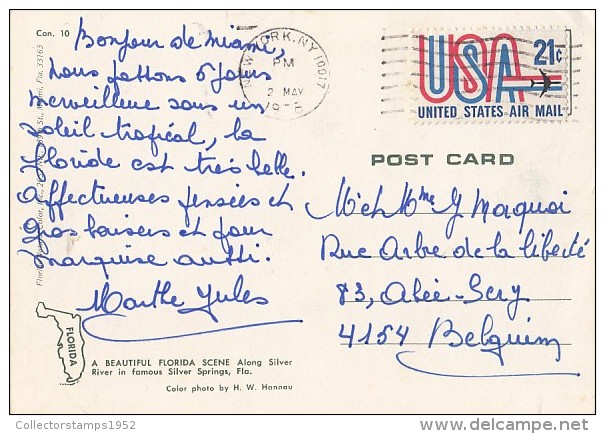 Con. 10
Bonjour de Miami,
nous passons 6 jours
merveilleux sous un
soleil tropical, la
Floride est très belle.
Affectueuses pensées et
gros baisers et pour
marquise aussi.
Marthe Jules
NEW YORK, NY 10017
PM
2 MAY
USA 21c
UNITED STATES AIR MAIL
POST CARD
M et Mme J Maquoi
Rue Arbre de la liberté
83, Alée-Sery
4154 Belgium
FLORIDA
A BEAUTIFUL FLORIDA SCENE Along Silver
River in famous Silver Springs, Fla.
Color photo by H. W. Hannau
Collectorstamps1952
delcampe.net